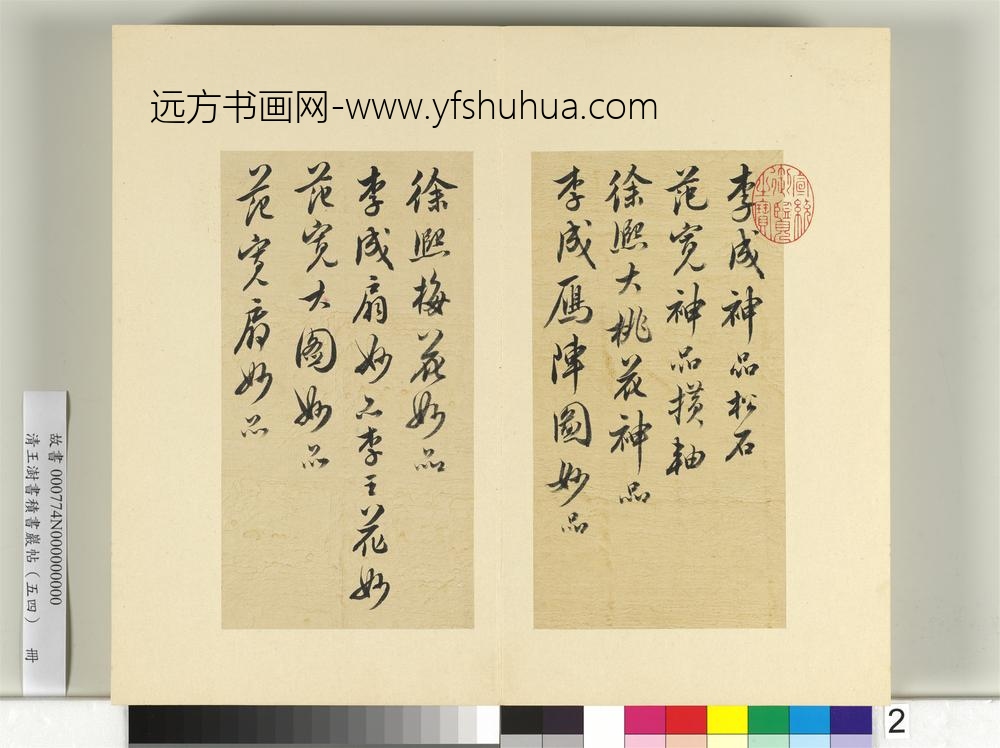 远方书画网-www.yfshuhua.com
李成神品松石
范宽神品横軸
徐熙大桃花神品
李成雁陣圖妙品
徐熙梅花妙品
李成扇妙品李王花妙
范宽大圖妙品
范寛扇妙品
宣統御覽之寶
故書 000774N000000000
清王澍書積書巖帖（五四） 冊
2